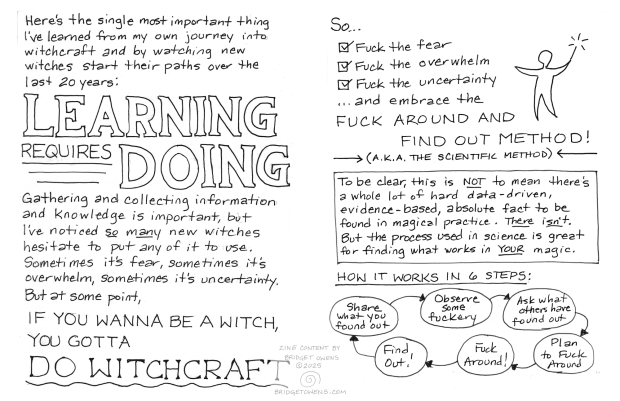 Here's the single most important thing
I've learned from my own journey into
witchcraft and by watching new
witches start their paths over the
last 20 years:
LEARNING
REQUIRES DOING
Gathering and collecting information
and knowledge is important, but
I've noticed so many new witches
hesitate to put any of it to use.
Sometimes it's fear, sometimes it's
overwhelm, sometimes it's uncertainty.
But at some point,
IF YOU WANNA BE A WITCH,
YOU GOTTA
DO WITCHCRAFT
So...
Fuck the fear
Fuck the overwhelm
Fuck the uncertainty
...and embrace the
FUCK AROUND AND
FIND OUT METHOD!
(A.K.A. THE SCIENTIFIC METHOD)
To be clear, this is NOT to mean there's
a whole lot of hard data-driven,
evidence-based, absolute fact to be
found in magical practice. There isn't.
But the process used in science is great
for finding what works in YOUR magic.
HOW IT WORKS IN 6 STEPS:
Observe
some
fuckery
Ask what
others have
found out
Plan
to Fuck
Around
Fuck
Around!
Find
Out!
Share
what you
found out
ZINE CONTENT BY
BRIDGET OWENS
©2025
BRIDGETOWENS.COM